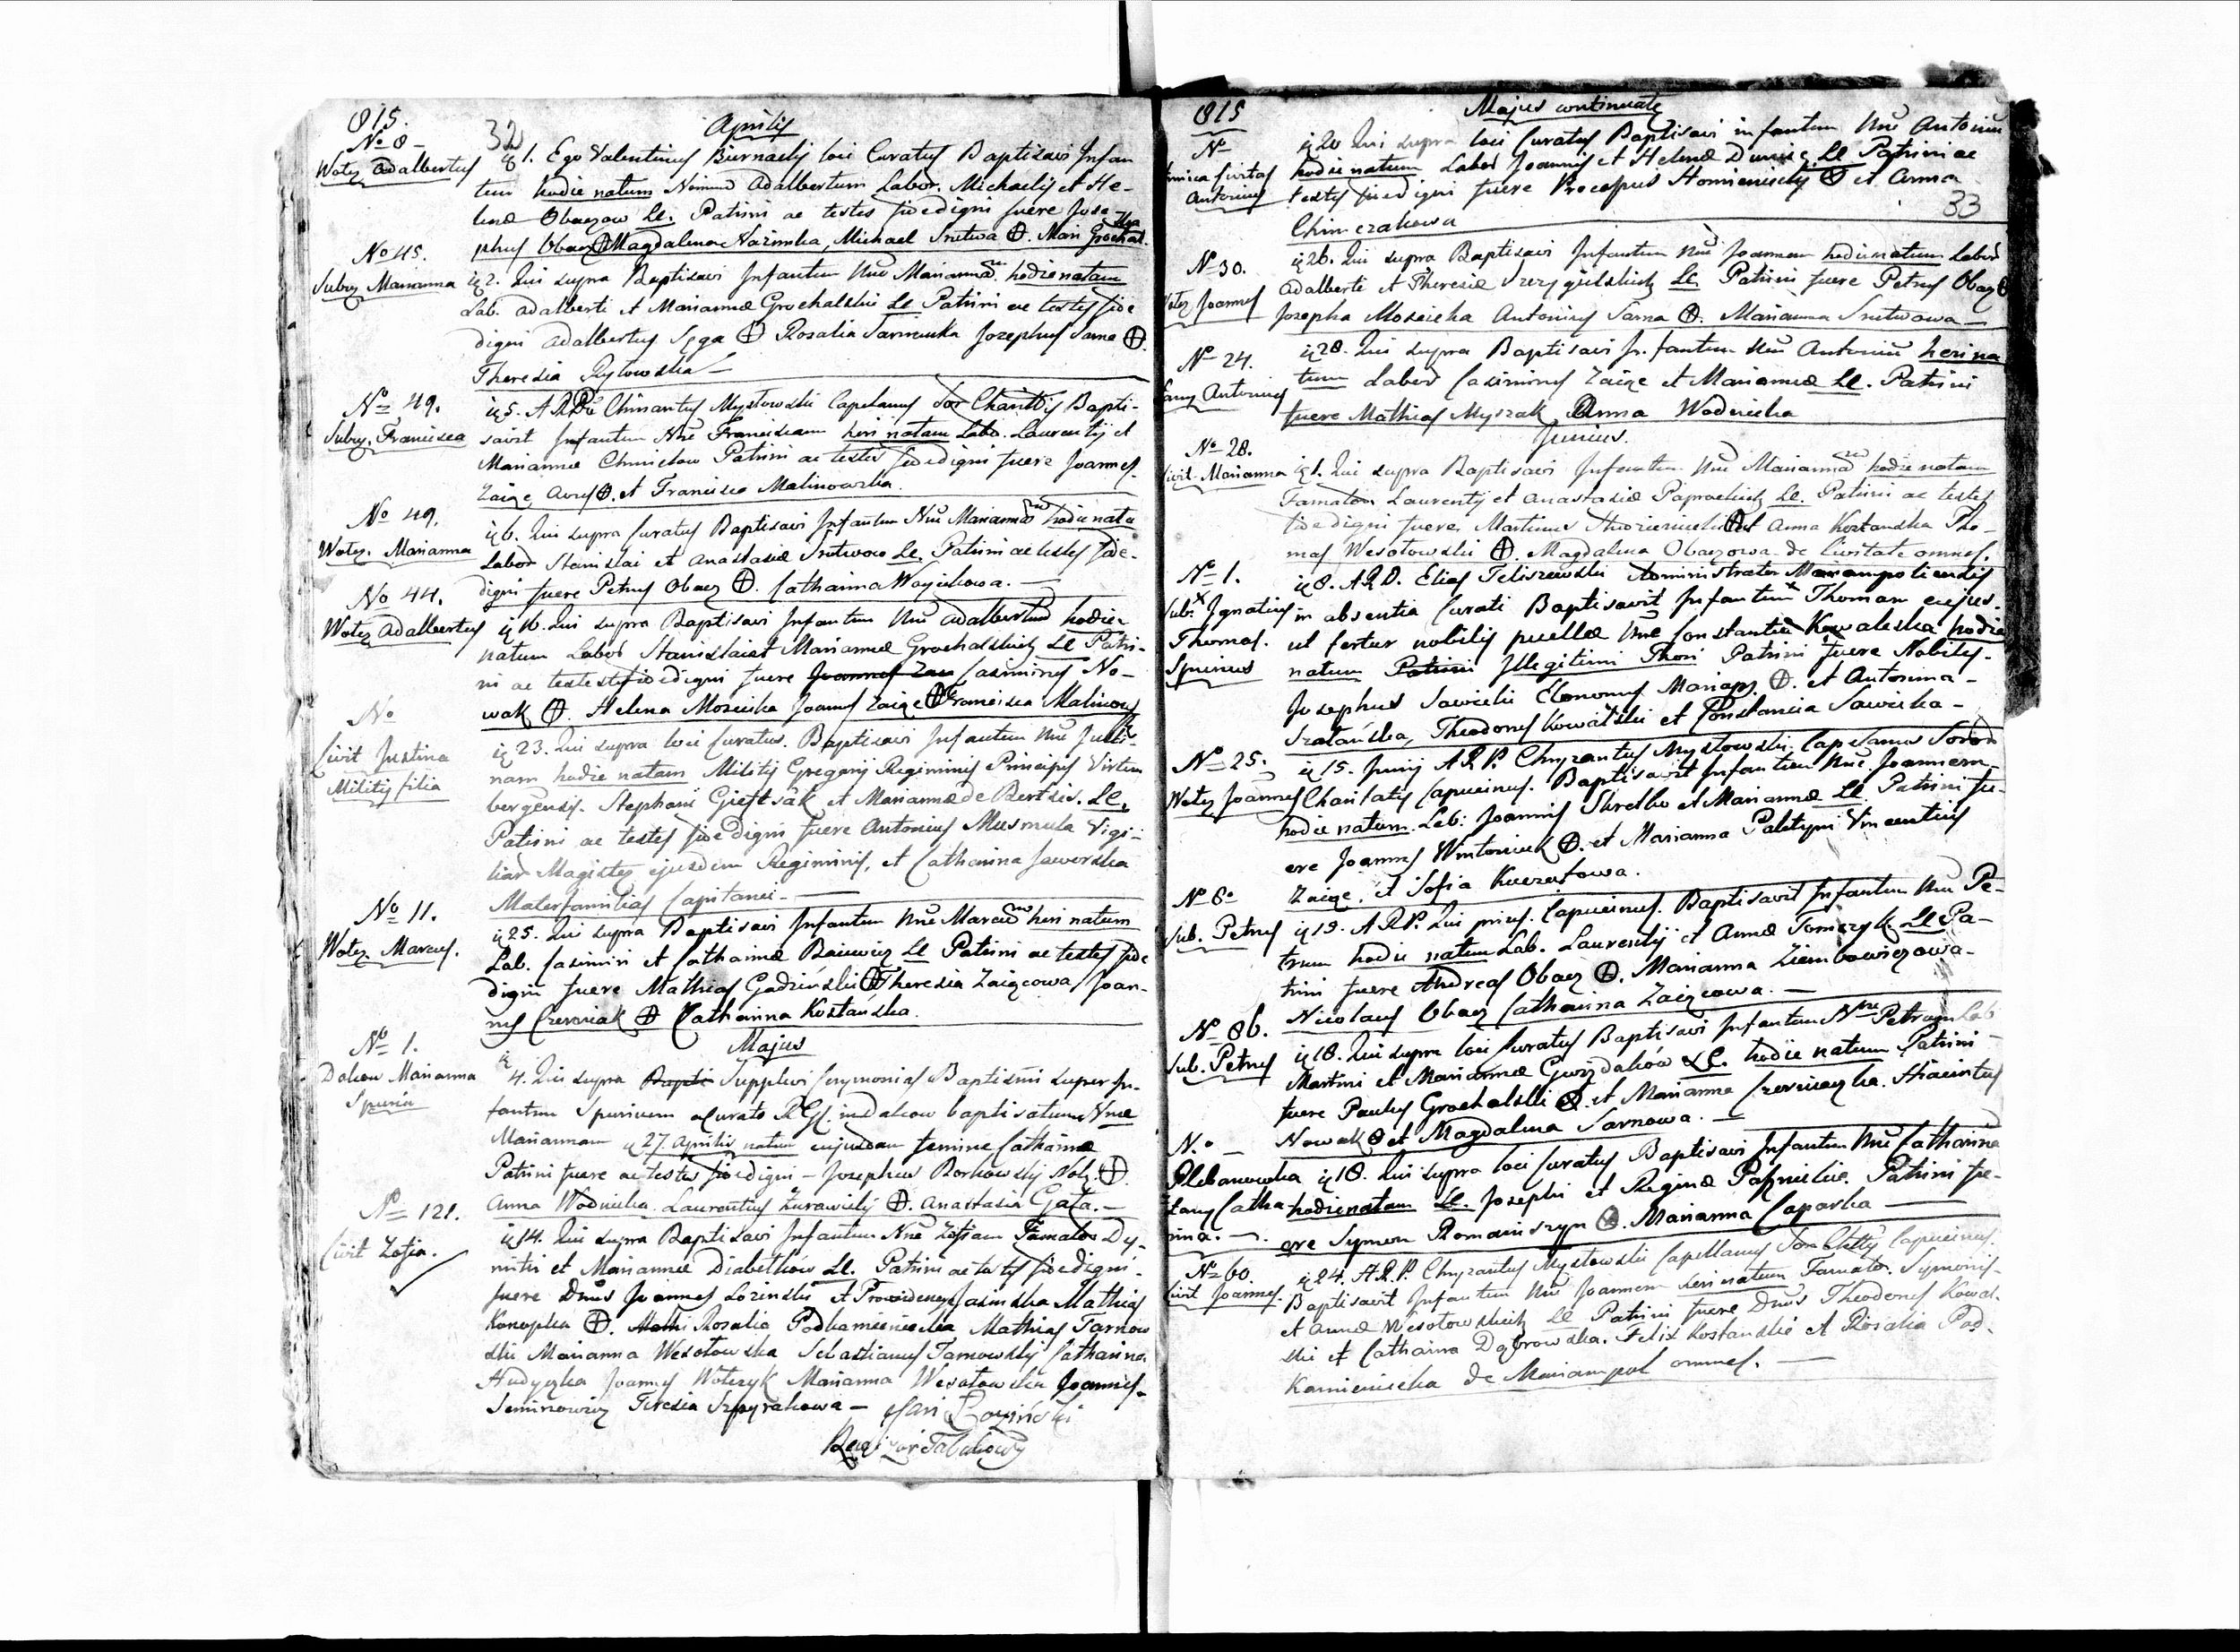 815.
32
Aprilis
No 8 -
Wolcz. Adalbertus
1. Ego Valentinus Biernacky loci Curatus Baptisavi Infan
tem hodie natum Nimine Adalbertum Labor. Michaelis et He-
lenæ Obaczow LC. Patrini ac testes fidedigni fuere Jose
phus Obacz ⊕ Magdalena Michael Snitwa ⊕. Mari Grochal
ska
No 45.
Subcz Marianna
2. Qui supra Baptisavi Infantem Nne Mariannam hodie natam
Lab. Adalberti et Mariannæ Grochalskie LC Patrini ac testes fide
digni Adalbertus ⊕ Rosalia Josephus Sarna ⊕.
Theresia Rylowska —
No 49.
Subcz. Francisca
5. Mysłowski Capelanus Baptis-
savit Infantem Nne Franciscam heri natam Labo. Laurentij et
Mariannæ Chmielow Patrini ac testes fidedigni fuere Joannes
Zaiąc ⊕. et Francisca Malinowska.
No 49.
Wolcz. Marianna
6. Qui supra Curatus Baptisavi Infantem Nne Mariannam hodie nata
Labor Stanislai et Anastasiæ Snitwow LC. Patrini ac testes fide-
digni fuere Petrus Obacz ⊕. Catharina Woycikowa. —
No 44.
Wolcz Adalbertus
16. Qui supra Baptisavi Infantem Nne Adalbertum hodie
natum Labor Stanislai et Mariannæ Grochalskich LC Patri-
ni ac testes fidedigni fuere Casimirus No-
wak ⊕. Helena Mosicka Joannes Zaiąc ⊕ Francisca Malinow
No
Civit Justina
Militis filia
23. Qui supra loci Curatus. Baptisavi Infantem Nne Justi-
nam hodie natam Militis Gregorij Regiminis Principis Virtem
bergensis. Stephani et Mariannæ de LC.
Patrini ac testes fidedigni fuere Antonius Musmula Vigi-
liar Magister ejusdem Regiminis, et Catharina Jaworska
Materfamilias Capitanei. —
No 11.
Wolcz. Marcus.
25. Qui supra Baptisavi Infantem Nne Marcum heri natum
Lab. Casimiri et Catharinæ LC Patrini ac testes fide
digni fuere Mathias Gadziński ⊕ Theresia Zaiącowa Joan-
nes Czerniak ⊕ Catharina Kostańska.
Majus
No 1.
Dolxow Marianna
Spuria
4. Qui supra Supplevi Cerymonias Baptismi super In-
fantem Spurium a Curato baptisatum Nne
Mariannam 27 Aprilis natum cujusdam femine Catharinæ
Patrini fuere ac testes fidedigni — Josephus Borkowsky ⊕.
Anna Wodnicka. Laurentius Zurawicky ⊕. Anastasia Gata. —
No 121.
Civit Zofia.
14. Qui supra Baptisavi Infantem Nne Zofiam Famator Dy-
mitri et Mariannæ Diabelkow LC. Patrini ac testes fidedigni
fuere Dnus Joannes Łozinski et Jasinska Mathias
Konopka ⊕. Rosalia Podkamienecka Mathias Tarnow
ski Marianna Wesołowska Sebastianus Tarnowsky Catharina
Hudyczka Joannes Wołczyk Marianna Wesołowska Joannes
Seminowicz Teresia Szpyrakowa — Jan Łoziński
Rewizor Tabakowy
815
Majus continuatę
33
No
Civitas
Antonius
20 Qui supra loci Curatus Baptisavi infantem Nne Antonium
hodie natum Labor Joannis et Helenæ LC Patrini ac
testes fidedigni fuere Procopius ⊕ et Anna
Chimczakowa
No 30.
Wolcz Joannes
26. Qui supra Baptisavi Infantem Nne Joannem hodie natum Labor
Adalberti et Theresiæ LC Patrini fuere Petrus Obacz ⊕
Josepha Mosicka Antonius Sarna ⊕. Marianna Snitwowa —
No 24.
Antonius
28. Qui supra Baptisavi Infantem Nne Antonium heri na
tum Labor Casimirus Zaiąc et Mariannæ LC. Patrini
fuere Mathias Myszak Anna Wodnicka
Junius.
No 28.
Civit. Marianna
1. Qui supra Baptisavi Infantem Nne Mariannam hodie natam
Famator Laurentij et Anastasiæ Paprockich LC. Patrini ac testes
fidedigni fuere Martinus ⊕ et Anna Kostanska Tho-
mas Wesołowski ⊕. Magdalena Obaczowa de Civitate omnes.
No 1.
Sub. Ignatius
Thomas.
Spurius
8. A.R.D. Elias Teliszewski Administrator Mariampoliensis
in absentia Curati Baptisavit Infantem Thomam cujus-
ut fertur nobilis puellæ Nne Constantiæ Kowaleska hodie
natum Patrini Illegitimi Thori Patrini fuere Nobiles-
Josephus Sawicki Econonus Mariap. ⊕. et Antonina
Szatańska, Theodorus Kowalski et Constancia Sawicka —
No 25.
Wolcz Joannes
15. Junij A.R.P. Chryzantus Mysłowski Capelanus Soror
Charitatis Capucinus. Baptisavit Infantem Nne Joannem
hodie natum. Lab: Joannis Skretko et Mariannæ LC Patrini fu-
ere Joannes Wintoniuk ⊕. et Marianna Palityni Vincentius
Zaiąc, et Sofia Kuczatowa.
No 8
Sub. Petrus
19. A.R.P. Qui prius. Capucinus. Baptisavit Infantem Nne Pe-
trum hodie natum Lab. Laurentij et Annæ Tomczyk LC Pa-
trini fuere Andreas Obacz ⊕. Marianna Ziembowiczowa
Nicolaus Obacz Catharina Zaiącowa. —
No 86.
Sub. Petrus
18. Qui supra loci Curatus Baptisavi Infantem Nne Petrum Lab
Martini et Mariannæ Gwizdaków LC. hodie natum Patrini
fuere Paulus Grochalski ⊕. et Marianna Hiacintus
Nowak ⊕ et Magdalena Sarnowa. —
No —
Plebanowka
Catha
rina. —
18. Qui supra loci Curatus Baptisavi Infantem Nne Catharina
hodie natam LC. Josephi et Reginæ Patrini fu-
ere Symon Romainszyn ⊕. Marianna Caparka —
No 60.
Civit Joannes.
24. A.R.P. Chryzantus Mysłowski Capellanus Capucinus
Baptisavit Infantem Nne Joannem heri natum Famator. Symonis
et Annæ Wesołowskich LC Patrini fuere Dnus Theodorus Kowal-
ski et Catharina Dąbrowska. Felix Kostanski et Rosalia Pod-
kamieniecka de Mariampol omnes. —